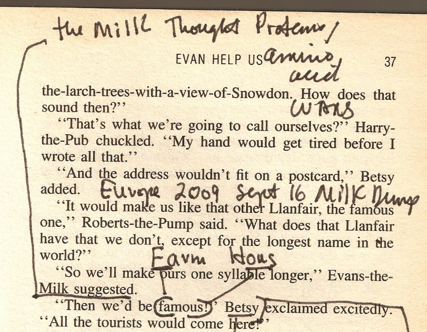 the Milk Thought Proteins/
EVAN HELP US amino 37
acid
the-larch-trees-with-a-view-of-Snowdon. How does that
sound then?" WARS
"That's what we're going to call ourselves?" Harry-
the-Pub chuckled. "My hand would get tired before I
wrote all that."
"And the address wouldn't fit on a postcard," Betsy
added. Europe 2009 Sept 16 Milk Dump
"It would make us like that other Llanfair, the famous
one," Roberts-the-Pump said. "What does that Llanfair
have that we don't, except for the longest name in the
world?"
Farm Hous
"So we'll make ours one syllable longer," Evans-the-
Milk suggested.
"Then we'd be famous!" Betsy exclaimed excitedly.
"All the tourists would come here!"